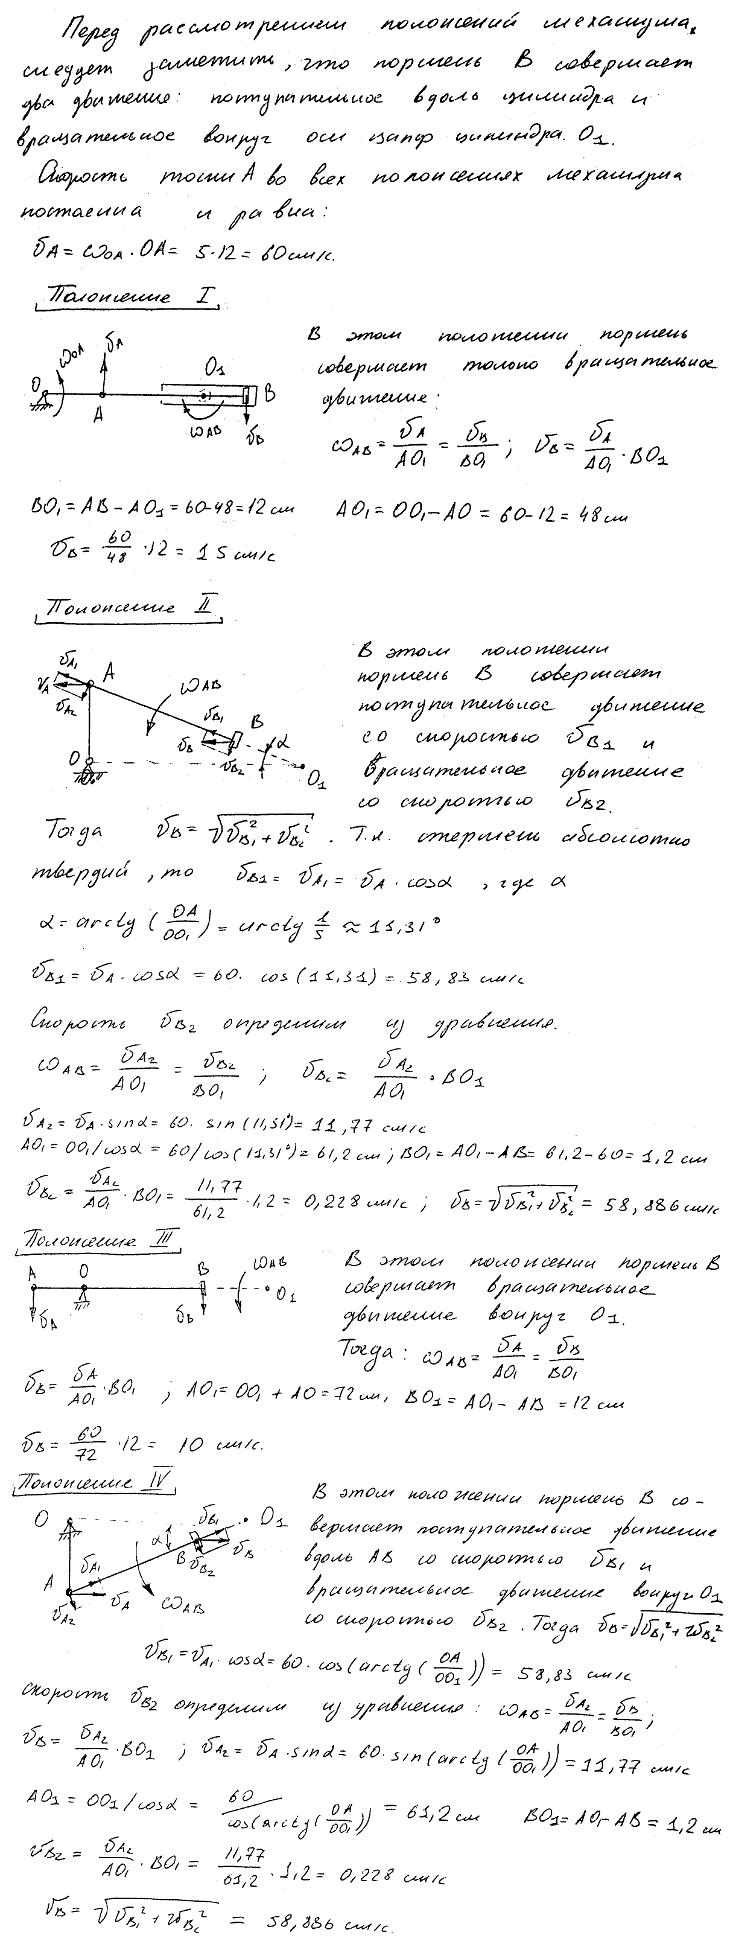 Перед рассмотрением положений механизма,
следует заметить, что поршень B совершает
два движение: поступательное вдоль цилиндра и
вращательное вокруг оси цапф цилиндра O₁.
Скорость точки A во всех положениях механизма
постоенна и равна:
υA = ωOA · OA = 5·12 = 60 см/с.
Положение I
ωOA υA O₁ O A B ωAB υB
В этом положении поршень
совершает только вращательное
движение:
ωAB = υA/AO₁ = υB/BO₁ ; υB = υA/AO₁ · BO₁
BO₁ = AB − AO₁ = 60-48 = 12 см AO₁ = OO₁ − AO = 60 − 12 = 48 см
υB = 60/48 · 12 = 15 см/с
Положение II
υA₁ A υA υA₂ ωAB υB₁ B υB υB₂ α O O₁
В этом положении
поршень B совершает
поступательное движение
со скоростью υB1 и
вращательное движение
со скоростью υB2.
Тогда υB = √(υB₁² + υB₂²) . Т.к. стержень абсолютно
твердий, то υB1 = υA₁ = υA · cosα , где α
α = arctg (OA/OO₁) = arctg 1/5 ≈ 11,31°
υB1 = υA · cosα = 60 · cos(11,31) = 58,83 см/с
Скорость υB2 определим из уравнения.
ωAB = υA2/AO₁ = υB2/BO₁ ; υB2 = υA2/AO₁ · BO₁
υA2 = υA · sinα = 60 · sin(11,31°) = 11,77 см/с
AO₁ = OO₁/cosα = 60/cos(11,31°) = 61,2 см ; BO₁ = AO₁ − AB = 61,2 − 60 = 1,2 см
υB2 = υA2/AO₁ · BO₁ = 11,77/61,2 · 1,2 = 0,228 см/с ; υB = √(υB₁² + υB₂²) = 58,886 см/с
Положение III
A O B ωAB O₁ υA υB
В этом положении поршень B
совершает вращательное
движение вокруг O₁.
Тогда: ωAB = υA/AO₁ = υB/BO₁
υB = υA/AO₁ · BO₁ ; AO₁ = OO₁ + AO = 72 см, BO₁ = AO₁ − AB = 12 см
υB = 60/72 · 12 = 10 см/с.
Положение IV
O υB₁ O₁ α B υB υB₂ A υA₁ υA₂ υA ωAB
В этом положении поршень B со-
вершает поступательное движение
вдоль AB со скоростью υB₁ и
вращательное движение вокруг O₁
со скоростью υB2 . Тогда υB = √(υB₁² + υB₂²)
υB₁ = υA₁ · cosα = 60 · cos(arctg(OA/OO₁)) = 58,83 см/с
скорость υB2 определим из уравнение: ωAB = υA2/AO₁ = υB/BO₁ ;
υB = υA2/AO₁ · BO₁ ; υA2 = υA · sinα = 60 · sin(arctg(OA/OO₁)) = 11,77 см/с
AO₁ = OO₁/cosα = 60/cos(arctg(OA/OO₁)) = 61,2 см BO₁ = AO₁ − AB = 1,2 см
υB2 = υA2/AO₁ · BO₁ = 11,77/61,2 · 1,2 = 0,228 см/с
υB = √(υB₁² + υB₂²) = 58,886 см/с.